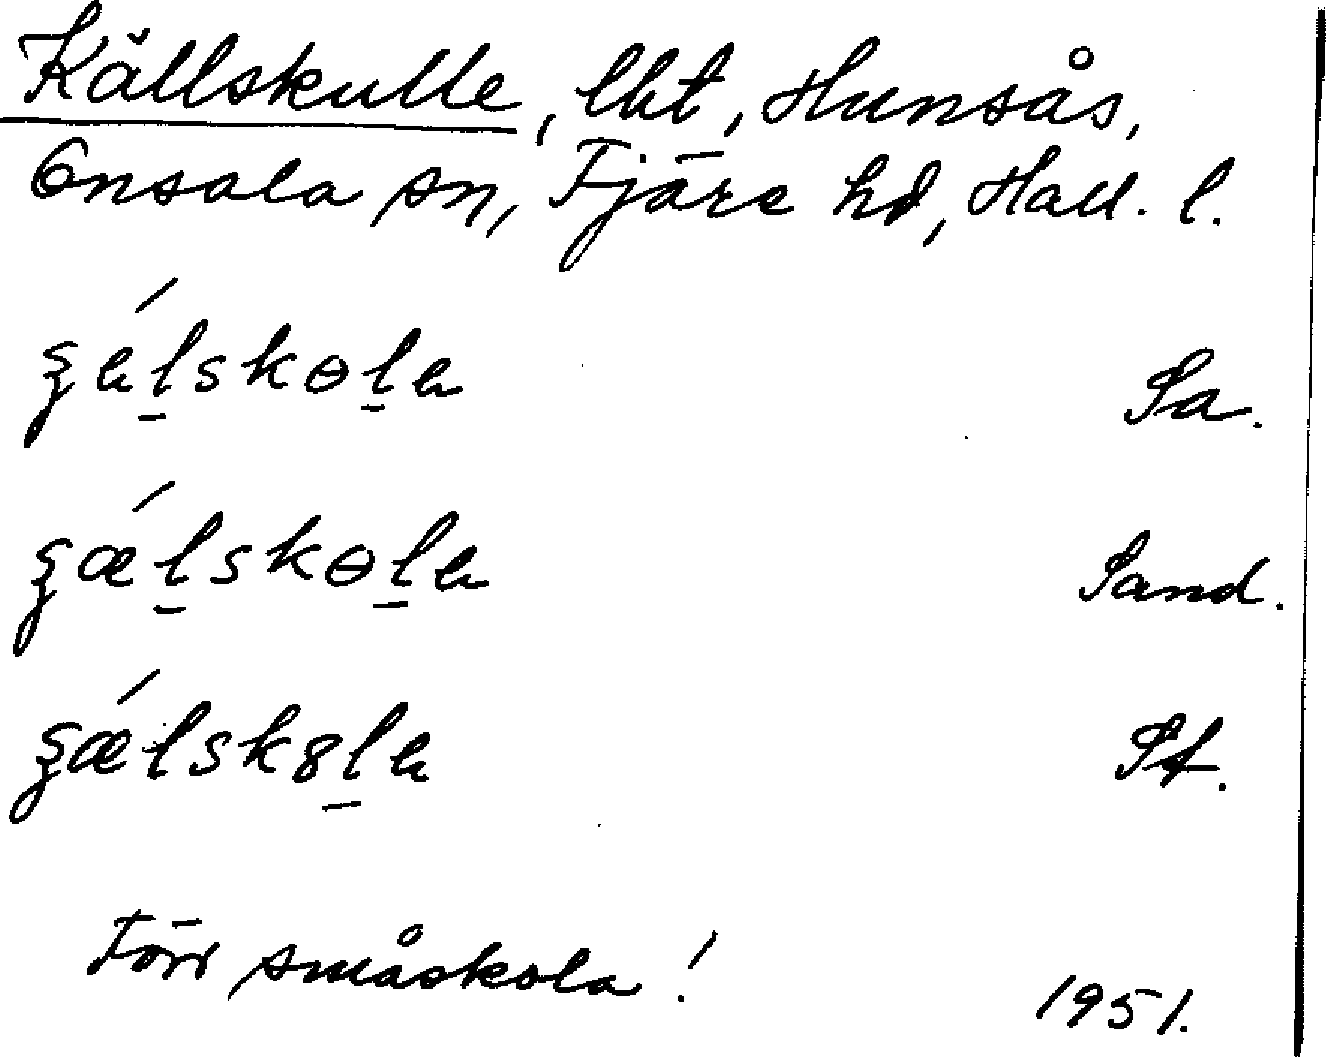 Källskulle, lht, Hunsås,
Onsala sn, Fjäre hd, Hall. l.
Sa.
Sand.
St.
Förr småskola!
1951.